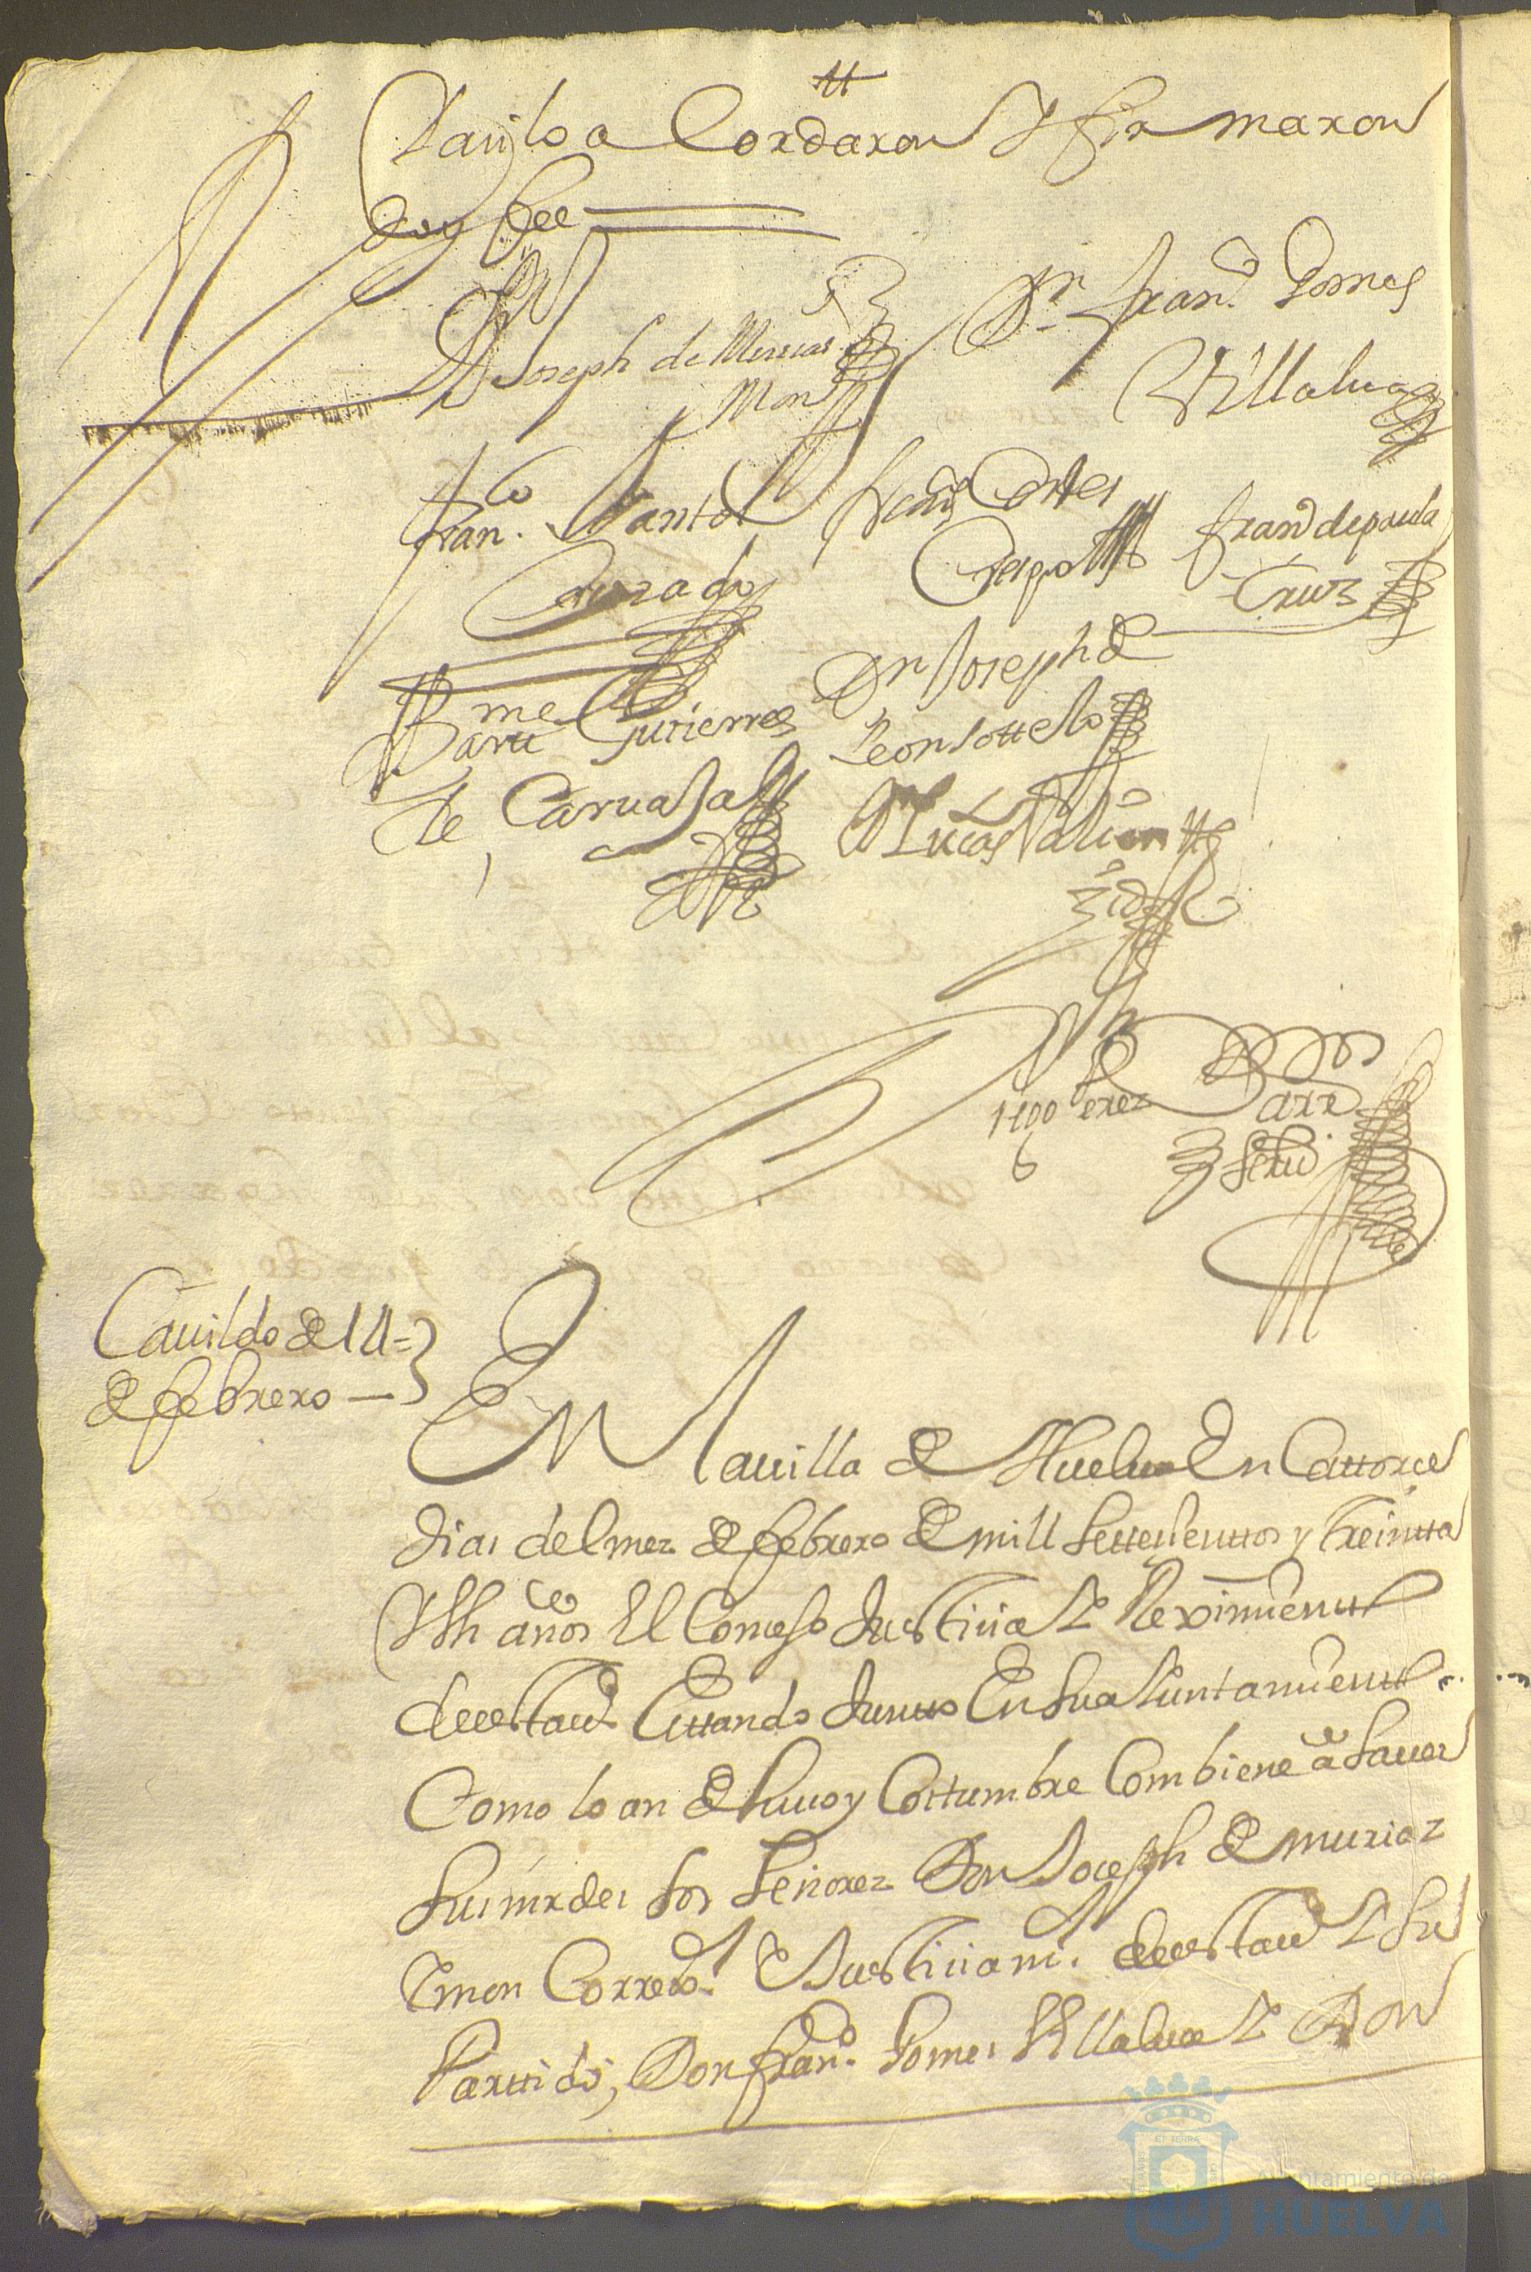 tt
Y assi lo aCordaron Y firmaron
doy fee
Dn Joseph de Murias
Mon
Dn. franco. Gomes
Villalua
franco. Santos
Quisado
franco Cortes
Crespo
franco de paula
Cruz
Barttme Gutierres
de CaruaJal
Dn Joseph de
Leon sottelo
Lucas Valiente
Cid
Perez
Cauildo de 14=
de febrero —
En la uilla de Huelua En Cattorce
dias del mez de febrero de mill settezientos y treintta
años El Consejo JusTicia Y Reximientto
de esta ud. Esttando Juntto En su aYuntamientto
Como lo an de husoy Costumbre Combiene a sauer
sus mrdes los señorez Don Joceph de muriaz
Y mon Corredor. Y JusTicia mr. de esta ud Y su
Parttido, Don franco. Gomes Villalua Y Don
Ayuntamiento de
HUELVA